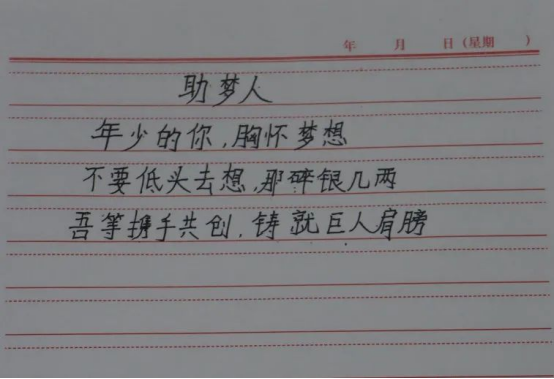 年 月 日（星期 ）
助梦人
年少的你,胸怀梦想
不要低头去想,那碎银几两
吾等携手共创,铸就巨人肩膀